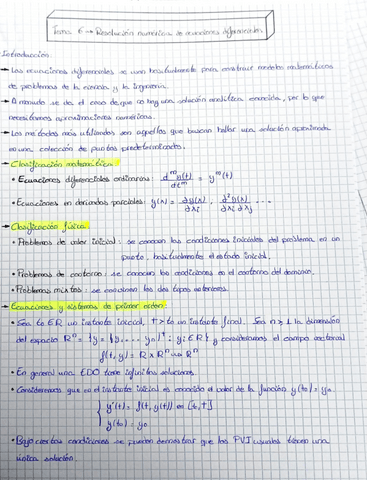 Tema 6 → Resolución numérica de ecuaciones diferenciales.
Introducción
→ Las ecuaciones diferenciales se usan habitualmente para construir modelos matemáticos
de problemas de la ciencia y la ingeniería.
→ A menudo se da el caso de que no hay una solución analítica conocida, por lo que
necesitamos aproximaciones numéricas.
→ Los métodos más utilizados son aquellos que buscan hallar una solución aproximada
en una colección de puntos predeterminados.
→ Clasificación matemática:
• Ecuaciones diferenciales ordinarias: d^m y(t)/dt^m = y^m(t)
• Ecuaciones en derivadas parciales y(x) = ∂y(x)/∂xi, ∂²y(x)/∂xi ∂xj ...
→ Clasificación física:
• Problemas de valor inicial: se conocen las condiciones iniciales del problema en un
punto, habitualmente el estado inicial.
• Problemas de contorno: se conocen las condiciones en el contorno del dominio.
• Problemas mixtos: se combinan los dos tipos anteriores.
→ Ecuaciones y sistemas de primer orden:
• Sea to ∈ R un instante inicial, T > to un instante final. Sea n ≥ 1 la dimensión
del espacio Rⁿ = {y = (y₁ ... yn)ᵗ : yi ∈ R} y consideramos el campo vectorial
f(t, y) = R x Rⁿ → Rⁿ
• En general una EDO tiene infinitas soluciones.
• Consideramos que en el instante inicial es conocido el valor de la función y(to) = yo.
{ y'(t) = f(t, y(t)) en [to, T]
y(to) = yo
• Bajo ciertas condiciones se pueden demostrar que los PVI usuales tienen una
única solución.